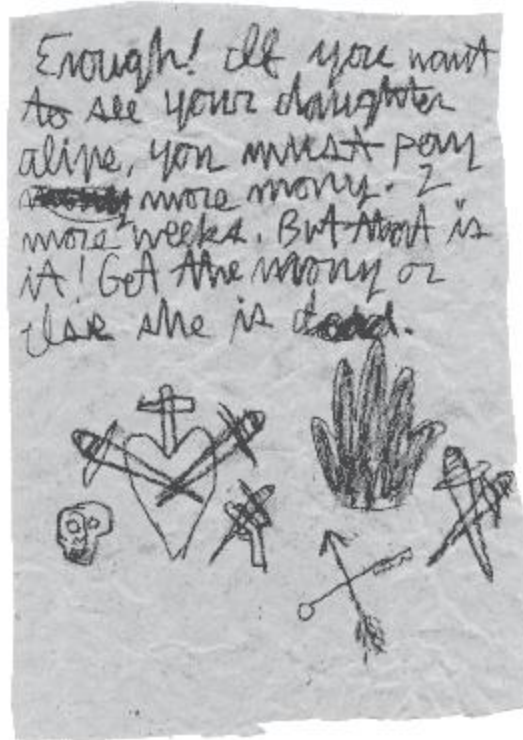 Enough! If you want
to see your daughter
alive, you must pay
more mony. 2
more weeks. But that is
it! Get the mony or
else she is dead.